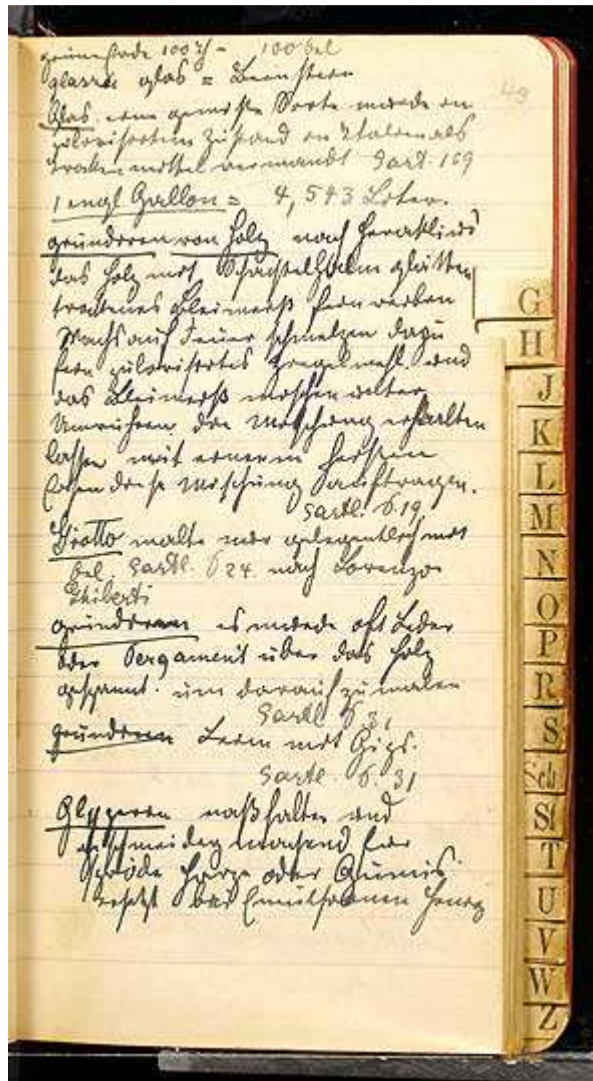 grüne Erde 100 gr - 100 öel
glassa glas = Bernstein
49
Glas eine gewisse Sorte wurde in
pulverisirtem Zustand in Italien als
Trockenmittel verwandt Sartl. 169
1 engl Gallon = 4,543 Liter.
gründiren von Holz nach Heraklius
das Holz mit Schachtelhalm glätten
trockenes Bleiweiß fein reiben
Wachs auf Feuer schmelzen dazu
fein pulverisirtes Ziegelmehl und
das Bleiweiß mischen unter
Umrühren die Mischung erkalten
lassen mit einem heißen
Eisen diese Mischung auftragen.
Sartl. S. 19,
Giotto malte nur gelegentlich mit
öel. Sartl. S 24. nach Lorenzo
Ghiberti
gründiren es wurde oft Leder
oder Pergament über das Holz
gespannt. um darauf zu malen
Sartl S 31
gründiren Leim mit Gips.
Sartl. S. 31
Glyzerin naß halten und
geschmeidig machend für
spröde Harze oder Gumis.
ersetzt bei Emulsionen Honig
G
H
J
K
L
M
N
O
P
R
S
Sch
St
T
U
V
W
Z